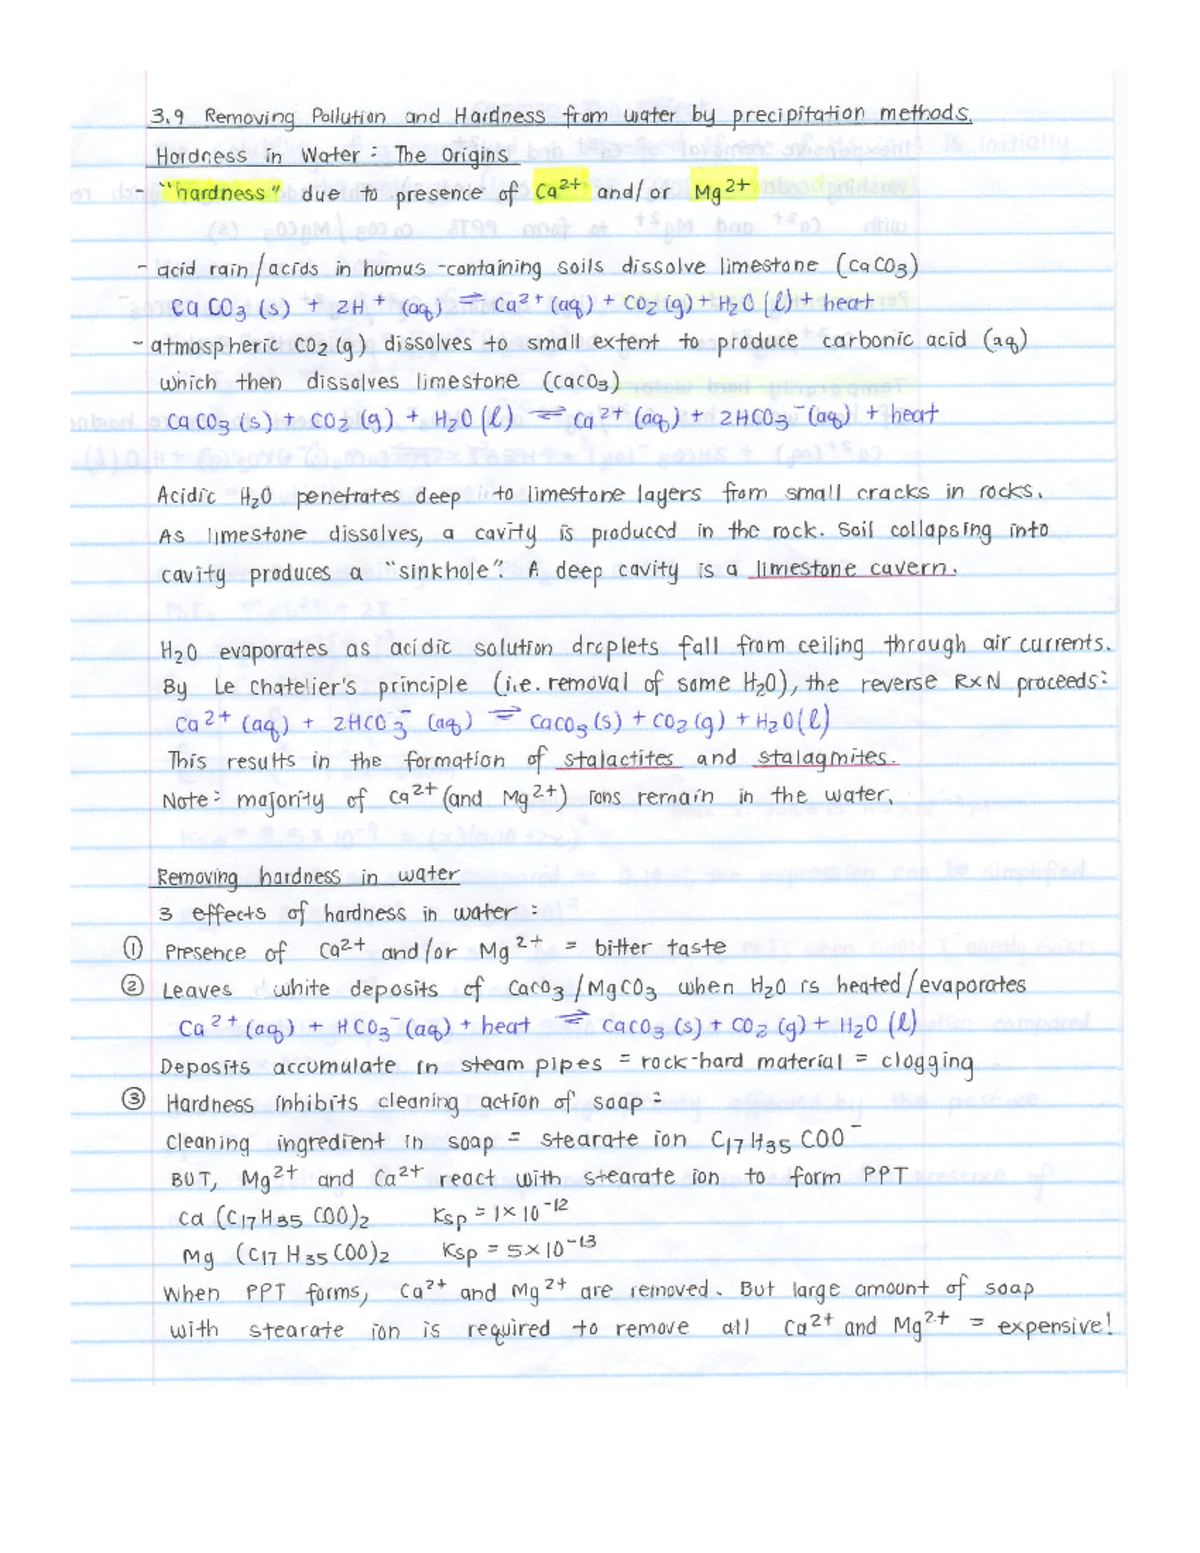 3.9 Removing Pollution and Hardness from water by precipitation methods.
Hardness in Water : The Origins
- "hardness" due to presence of Ca²⁺ and/or Mg²⁺
- acid rain/acids in humus-containing soils dissolve limestone (CaCO₃)
CaCO₃ (s) + 2H⁺ (aq) ⇌ Ca²⁺ (aq) + CO₂ (g) + H₂O (l) + heat
- atmospheric CO₂ (g) dissolves to small extent to produce carbonic acid (aq)
which then dissolves limestone (CaCO₃)
CaCO₃ (s) + CO₂ (g) + H₂O (l) ⇌ Ca²⁺ (aq) + 2HCO₃⁻ (aq) + heat
Acidic H₂O penetrates deep into limestone layers from small cracks in rocks.
As limestone dissolves, a cavity is produced in the rock. Soil collapsing into
cavity produces a "sinkhole". A deep cavity is a limestone cavern.
H₂O evaporates as acidic solution droplets fall from ceiling through air currents.
By Le Chatelier's principle (i.e. removal of some H₂O), the reverse RXN proceeds:
Ca²⁺ (aq) + 2HCO₃⁻ (aq) ⇌ CaCO₃ (s) + CO₂ (g) + H₂O (l)
This results in the formation of stalactites and stalagmites.
Note: majority of Ca²⁺ (and Mg²⁺) ions remain in the water.
Removing hardness in water
3 effects of hardness in water :
① Presence of Ca²⁺ and/or Mg²⁺ = bitter taste
② Leaves white deposits of CaCO₃/MgCO₃ when H₂O is heated/evaporates
Ca²⁺ (aq) + HCO₃⁻ (aq) + heat ⇌ CaCO₃ (s) + CO₂ (g) + H₂O (l)
Deposits accumulate in steam pipes = rock-hard material = clogging
③ Hardness inhibits cleaning action of soap :
Cleaning ingredient in soap = stearate ion C₁₇H₃₅COO⁻
BUT, Mg²⁺ and Ca²⁺ react with stearate ion to form PPT
Ca (C₁₇H₃₅COO)₂ Ksp = 1×10⁻¹²
Mg (C₁₇H₃₅COO)₂ Ksp = 5×10⁻¹³
When PPT forms, Ca²⁺ and Mg²⁺ are removed. But large amount of soap
with stearate ion is required to remove all Ca²⁺ and Mg²⁺ = expensive!